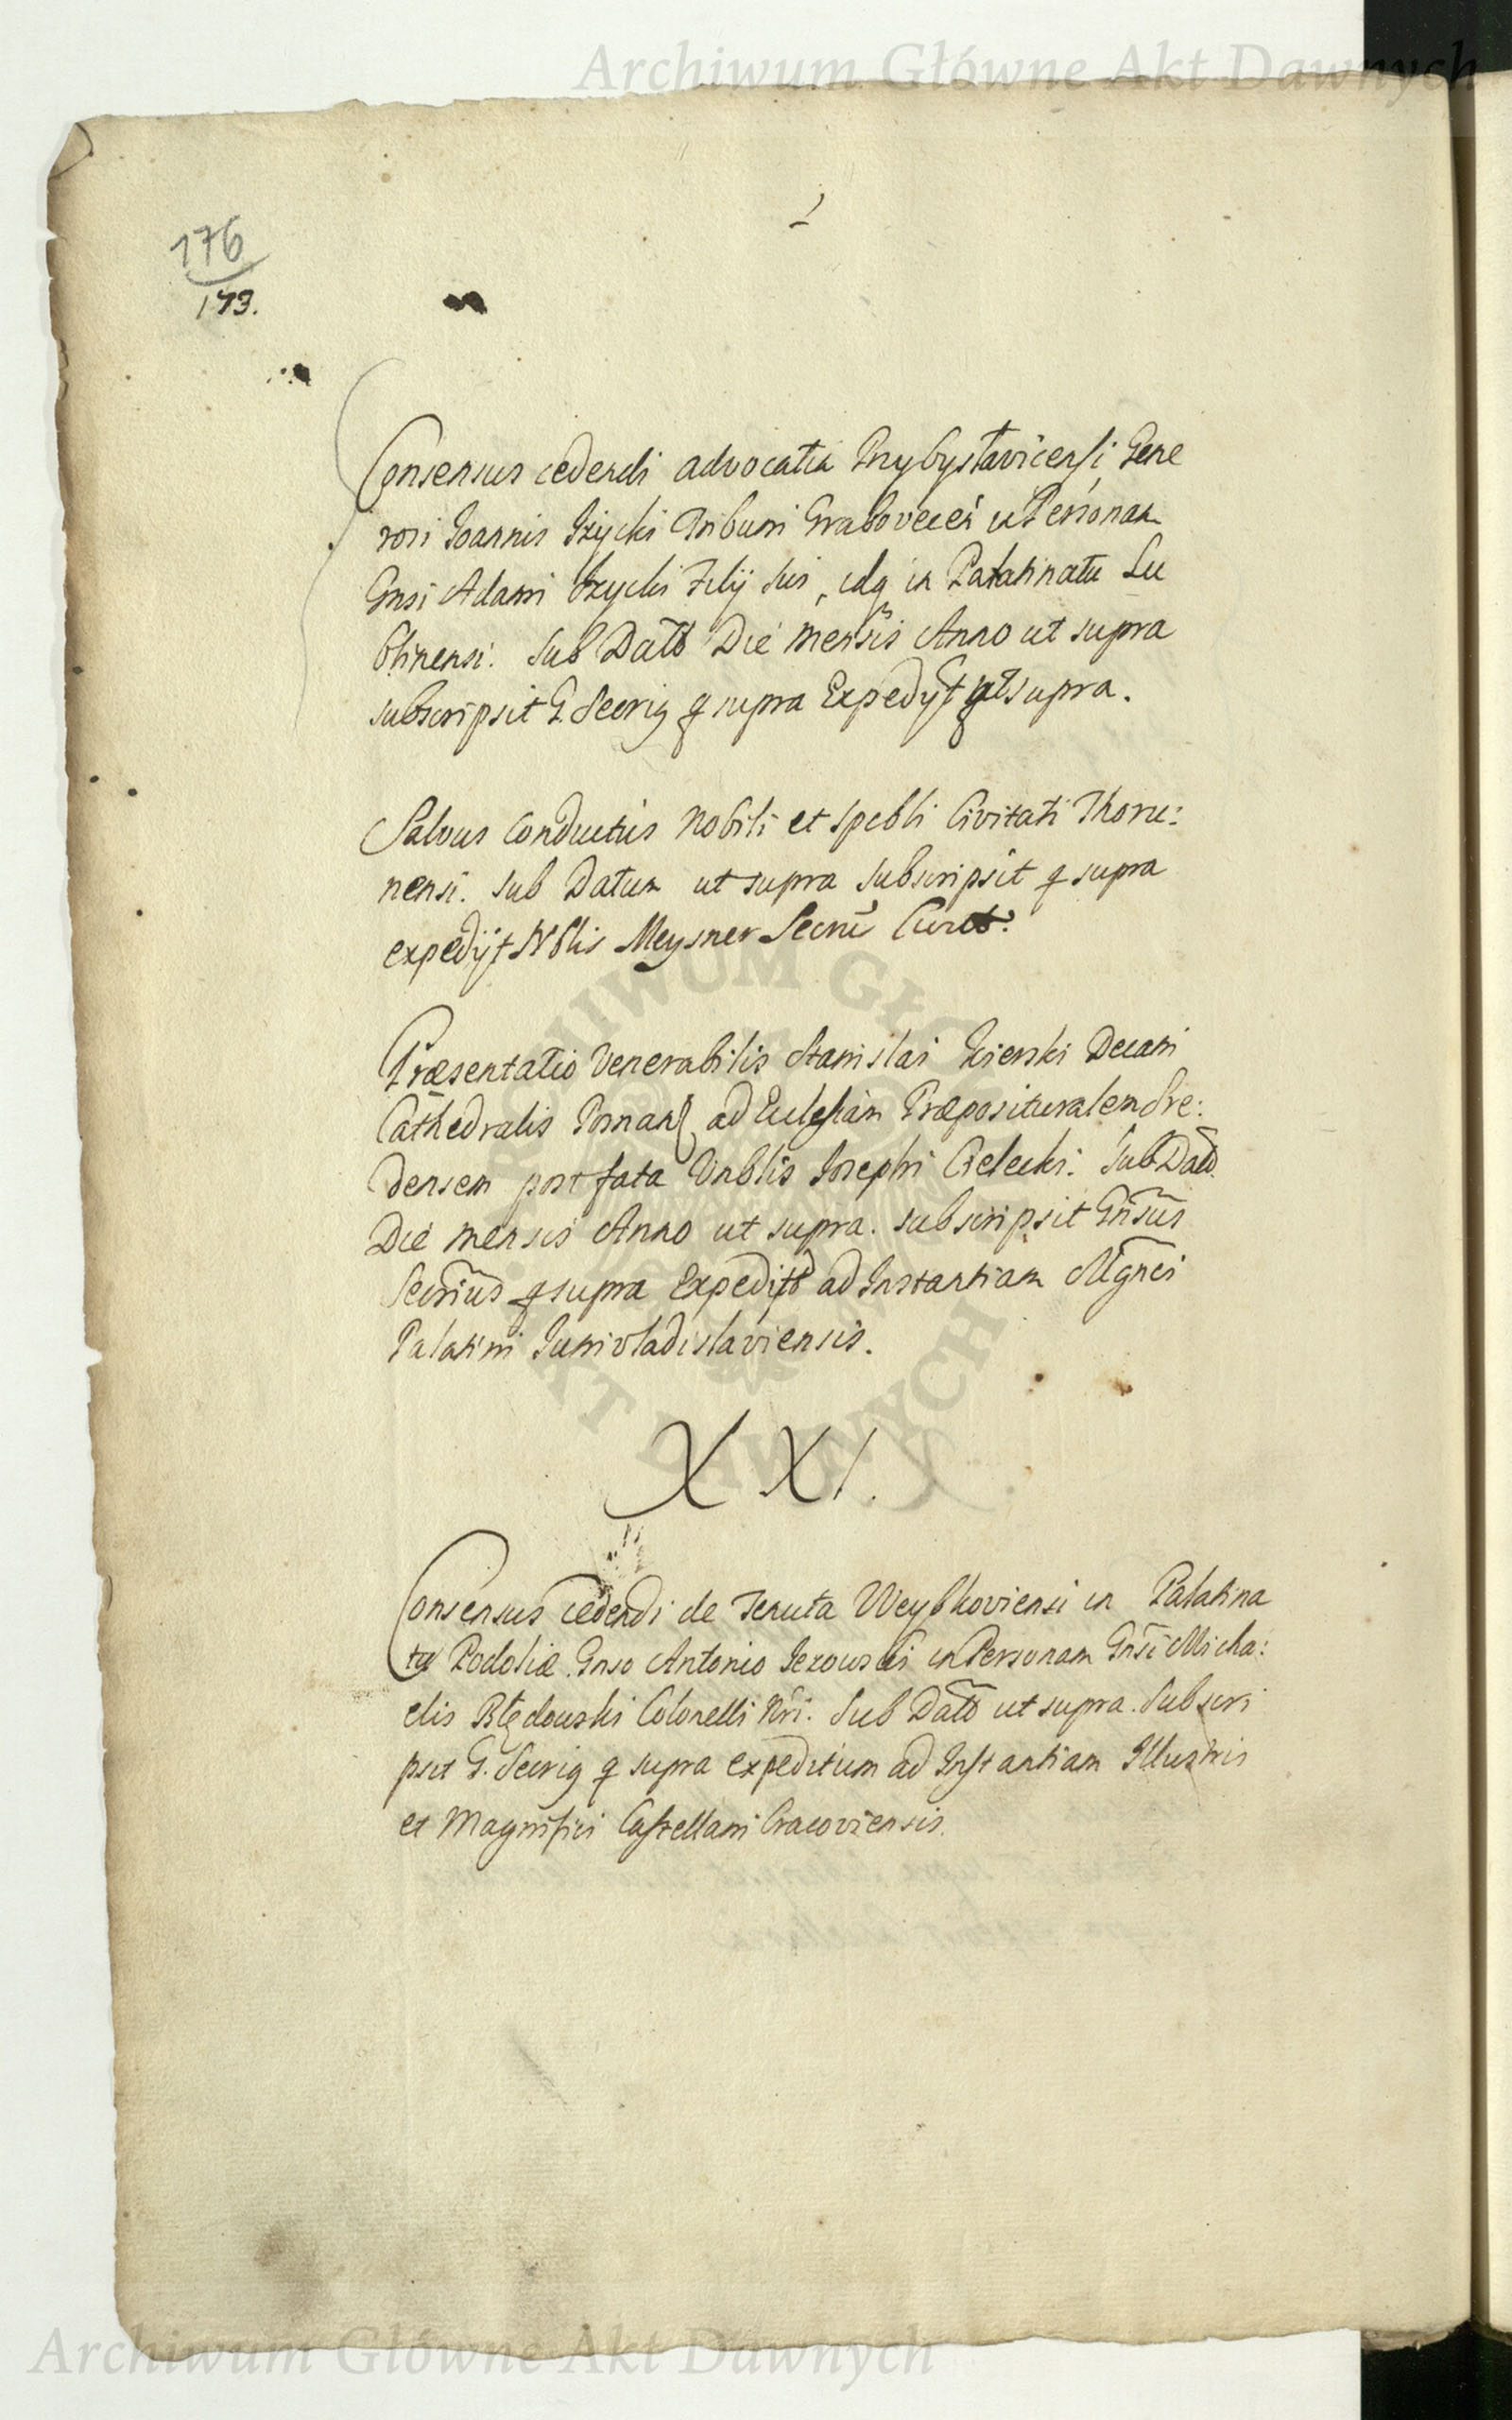 Archiwum Główne Akt Dawnych
176
173.
Consensus cedendi advocatia Przybysławicensi Gene
rosi Ioannis Izycki Tribuni Graboveceń in Personam
Gnsi Adami Izycki Filij sui, idq in Palatinatu Lu
blinensi. Sub Datto Die Mensis Anno ut supra
subscripsit G. Secrig q supra Expedijt ut supra.
Salvus Conductus Nobili et Spebli Civitati Thoru:
nensi. Sub Datum ut supra subscripsit q supra
expedijt Nblis Meysner Secrii
Præsentatio Venerabilis Stanislai Kierski Decani
Cathedralis Posnan ad Ecclesiam Præposituralem Sre:
densem post fata Vnblis Iosephi Cielecki. Sub Datto
Die Mensis Anno ut supra. subscripsit Gnsus
Secrius q supra Expedit ad Instantiam Mgnci
Palatini Iunivladislaviensis.
XXI.
Consensus cedendi de Tenuta Weybkoviensi in Palatina
tu Podoliæ Gnso Antonio Jezowski in Personam Gnsi Micha:
elis Błędowski Colonelli Nri. Sub Datto ut supra. Subscri
psit G. Secrig q supra expeditum ad Instantiam Illustris
et Magnifici Castellani Cracoviensis.
Archiwum Główne Akt Dawnych